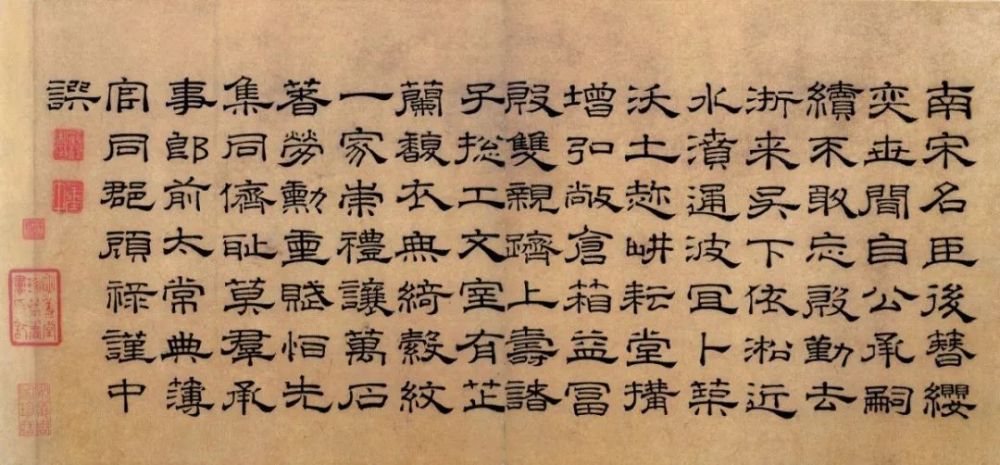 南宋名臣後簪纓
奕世聞自公承嗣
續不敢忘殷勤去
浙来吴下依淞近
水濆通波冝卜築
沃土趂畊耘堂搆
增弘敞倉箱益冨
殷雙親躋上壽諸
子捴工文室有芷
蘭馥衣無綺縠紋
一家崇禮讓萬石
著勞勳重賦怕先
集同儕耻莫羣承
事郎前太常典薄
官同郡顧禄謹中
譔